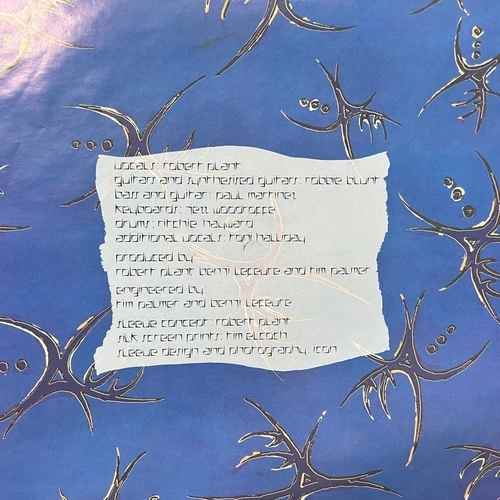 vocals: robert plant
guitars and synthesised guitars: robbie blunt
bass and guitar: paul martinez
keyboards: jezz woodroffe
drums: ritchie hayward
additional vocals: toni halliday
produced by
robert plant benji lefevre and tim palmer
engineered by
tim palmer and benji lefevre
sleeve concept: robert plant
silk screen prints:
sleeve design and photography: icon